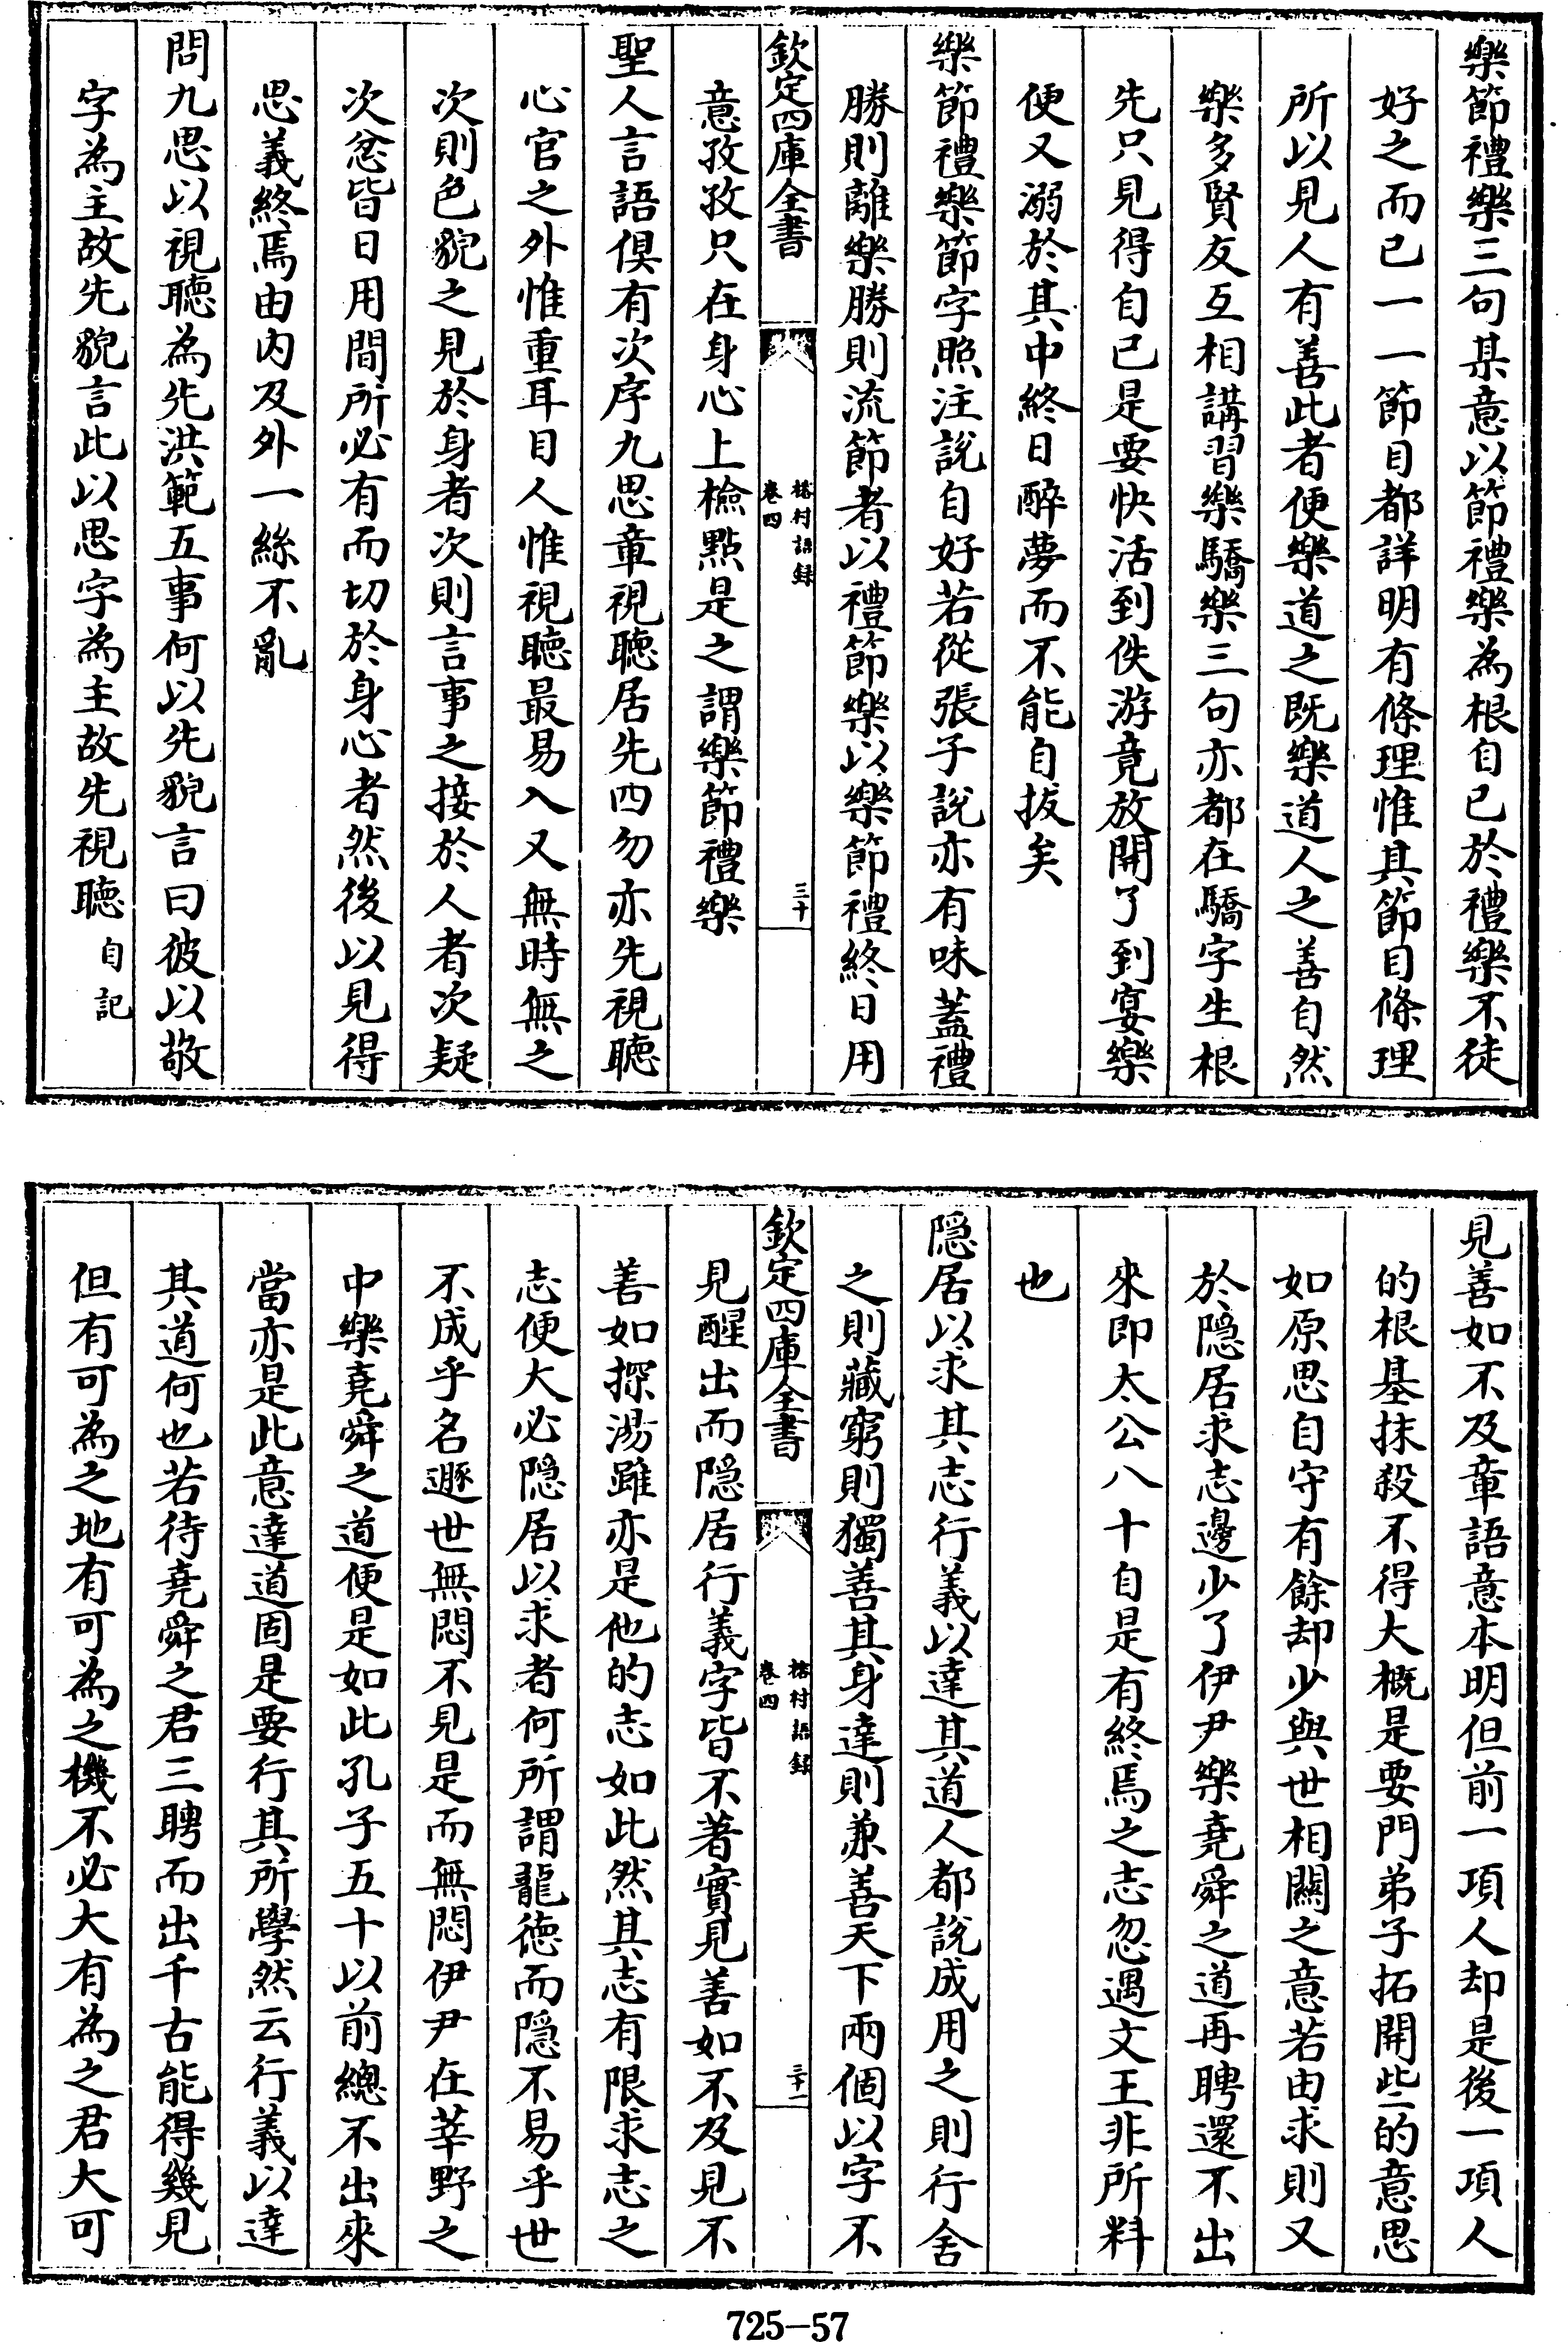 樂節禮樂三句某意以節禮樂為根自已於禮樂不徒
好之而已一一節目都詳明有條理惟其節目條理
所以見人有善此者便樂道之既樂道人之善自然
樂多賢友互相講習樂驕樂三句亦都在驕字生根
先只見得自已是要快活到佚游竟放開了到宴樂
便又溺於其中終日醉夢而不能自拔矣
樂節禮樂節字照注說自好若從張子說亦有味蓋禮
勝則離樂勝則流節者以禮節樂以樂節禮終日用
欽定四庫全書
榕村語録
卷四
三十
意孜孜只在身心上檢點是之謂樂節禮樂
聖人言語俱有次序九思章視聽居先四勿亦先視聽
心官之外惟重耳目人惟視聽最易入又無時無之
次則色貌之見於身者次則言事之接於人者次疑
次忿皆日用間所必有而切於身心者然後以見得
思義終焉由内及外一絲不亂
問九思以視聽為先洪範五事何以先貌言曰彼以敬
字為主故先貌言此以思字為主故先視聽自記
見善如不及章語意本明但前一項人却是後一項人
的根基抹殺不得大概是要門弟子拓開些的意思
如原思自守有餘却少與世相關之意若由求則又
於隠居求志邊少了伊尹樂堯舜之道再聘還不出
來即太公八十自是有終焉之志忽遇文王非所料
也
隠居以求其志行義以達其道人都說成用之則行舍
之則藏窮則獨善其身達則兼善天下兩個以字不
欽定四庫全書
榕村語録
卷四
三十一
見醒出而隠居行義字皆不著實見善如不及見不
善如探湯雖亦是他的志如此然其志有限求志之
志便大必隠居以求者何所謂龍徳而隠不易乎世
不成乎名遯世無悶不見是而無悶伊尹在莘野之
中樂堯舜之道便是如此孔子五十以前總不出來
當亦是此意達道固是要行其所學然云行義以達
其道何也若待堯舜之君三聘而出千古能得幾見
但有可為之地有可為之機不必大有為之君大可
725-57